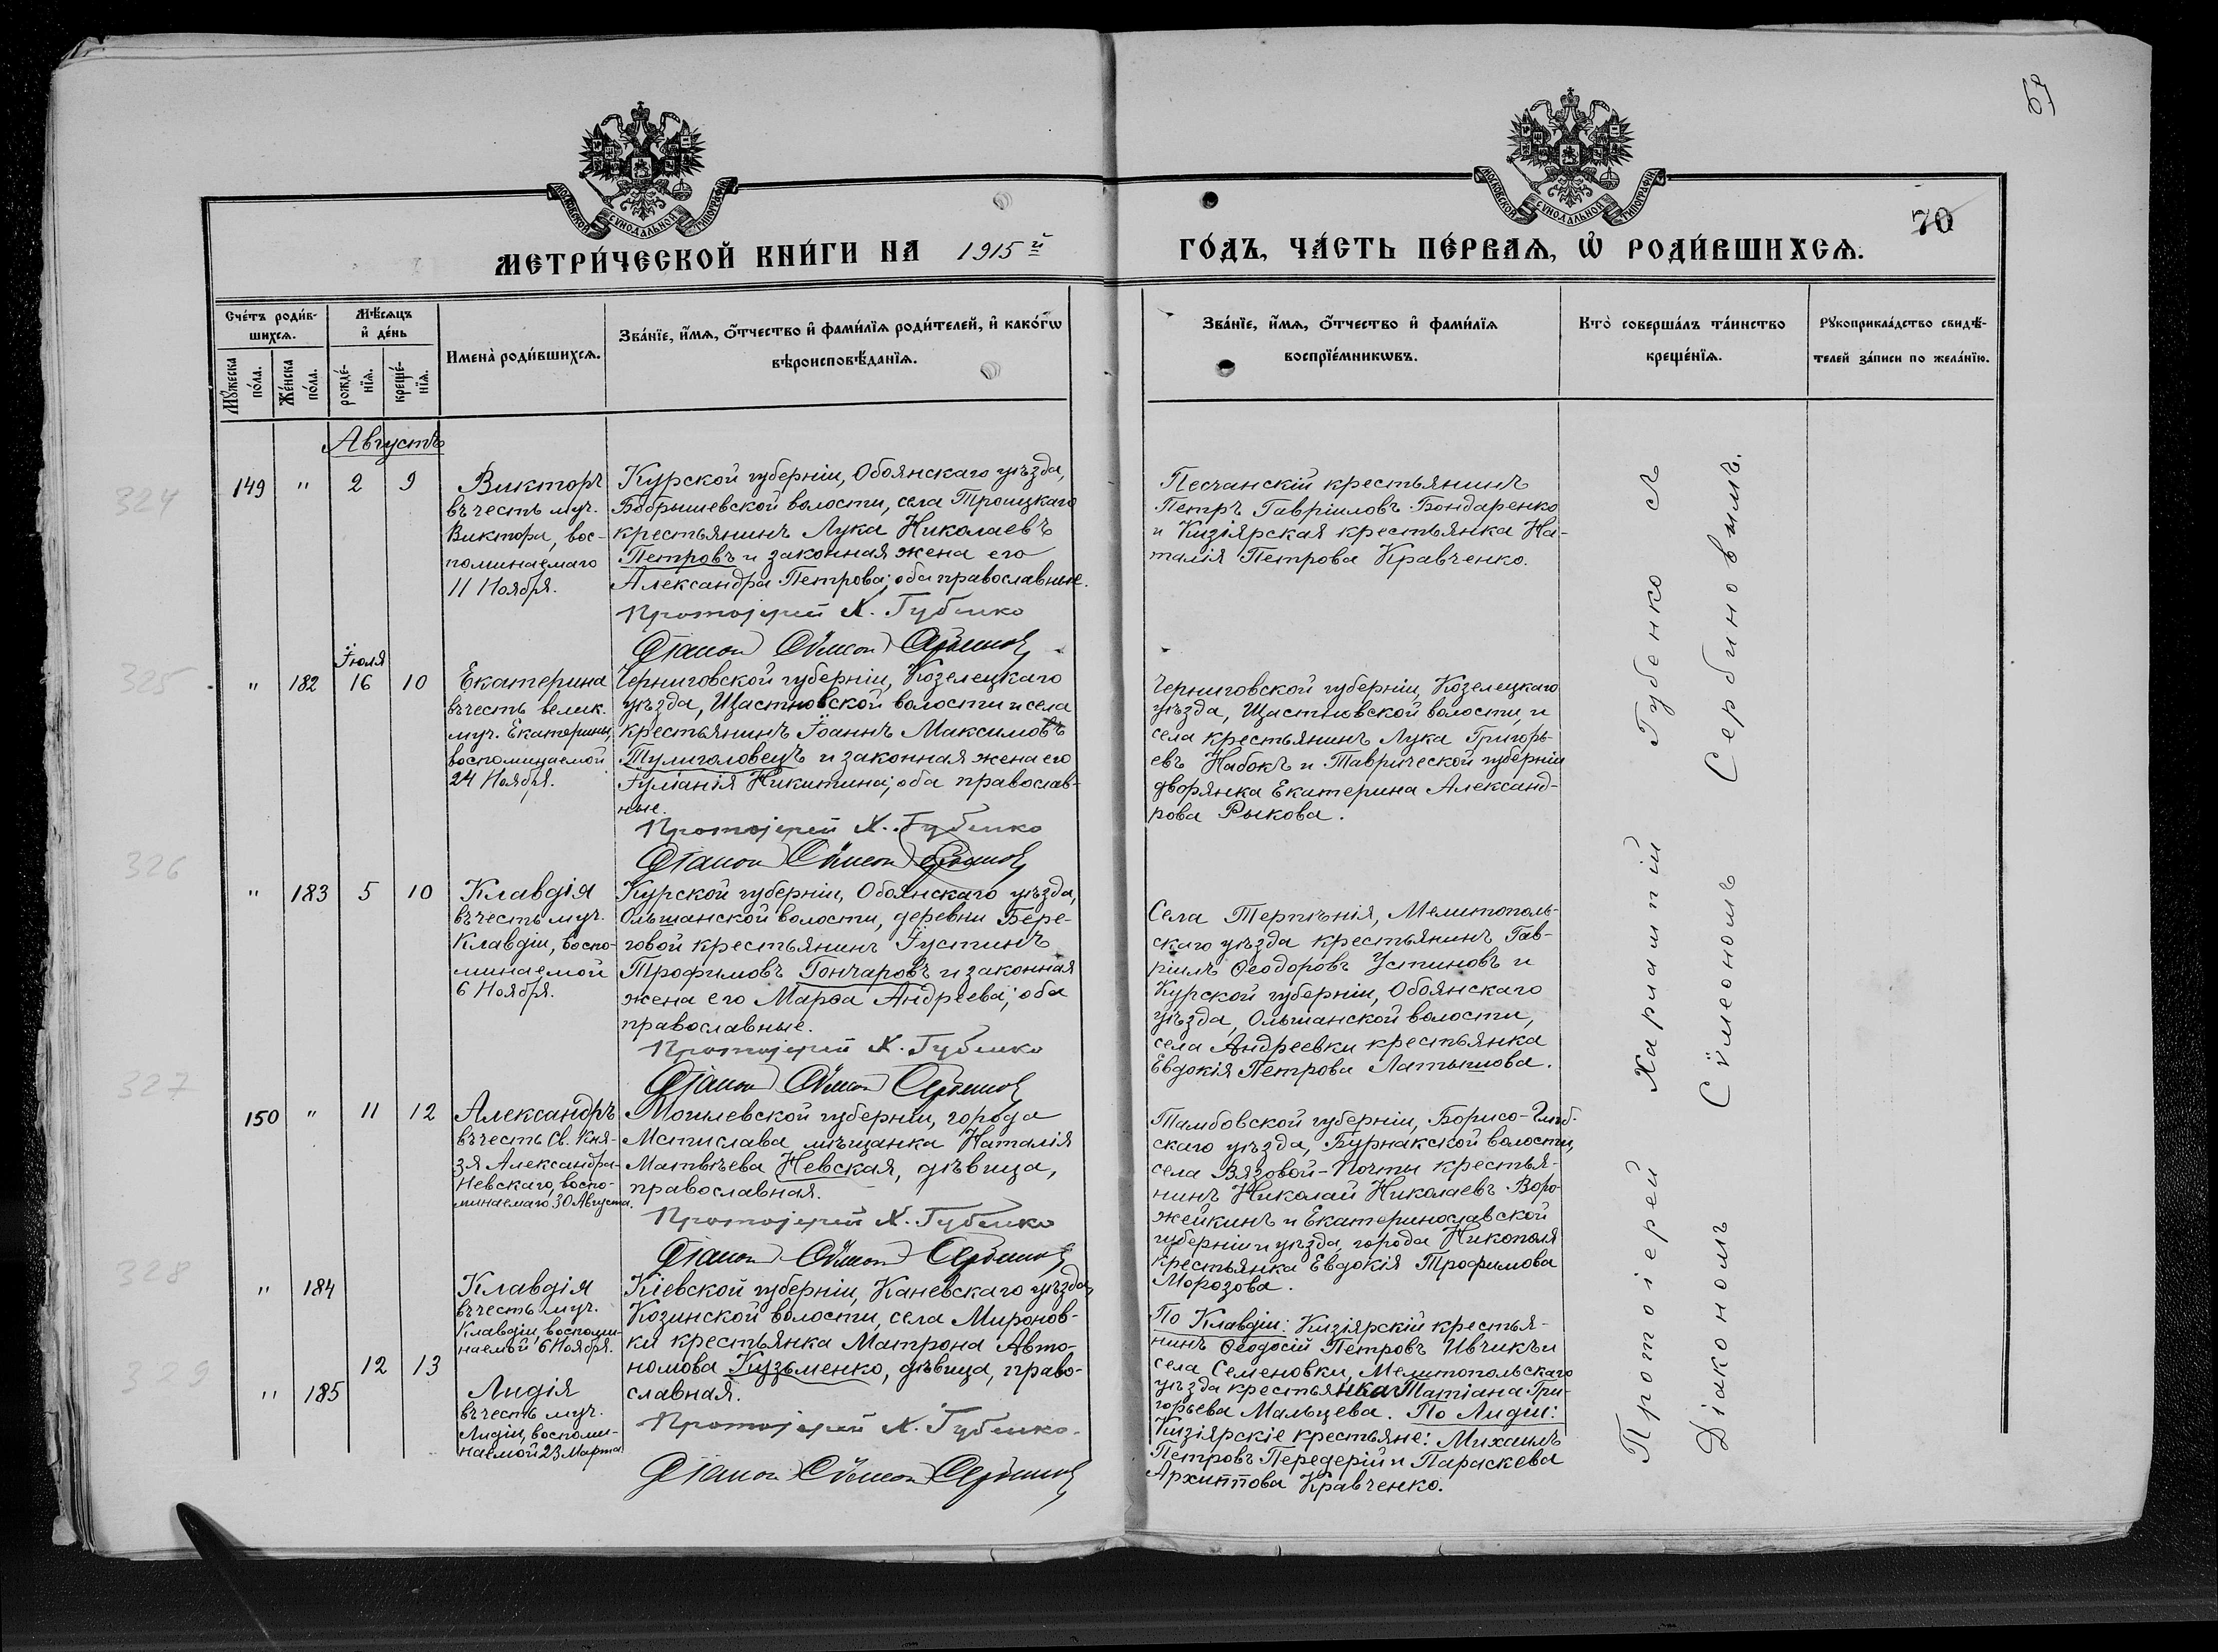 69
70
МОСКОВСКОЙ СУНОДАЛЬНОЙ ТИПОГРАФІИ
МОСКОВСКОЙ СУНОДАЛЬНОЙ ТИПОГРАФІИ
МЕТРИ́ЧЕСКОЙ КНИ́ГИ НА 1915й
ГО́ДЪ, ЧА́СТЬ ПЕ́РВАѦ, Ѡ҆ РОДИ́ВШИХСѦ.
Сче́тъ роди́в-
шихсѧ.
Мꙋ́жеска по́ла.
Же́нска по́ла.
Мѣ́сѧцъ
и҆ де́нь
рожде́-
нїѧ.
креще́-
нїѧ.
Имена̀ роди́вшихсѧ.
Зва́нїе, и҆́мѧ, ѻ҆́тчество и҆ фами́лїѧ роди́телей, и҆ како́гѡ
вѣроисповѣ́данїѧ.
Зва́нїе, и҆́мѧ, ѻ҆́тчество и҆ фами́лїѧ
воспрїе́мникѡвъ.
Кто̀ соверша́лъ та́инство
креще́нїѧ.
Рꙋкоприкла́дство свидѣ́-
телей за́писи по жела́нїю.
Августъ
324
149 " 2 9
Викторъ
въ честь муч.
Виктора, вос-
поминаемаго
11 Ноября.
Курской губерніи, Обоянскаго уѣзда,
Бобрышевской волости, села Троицкаго
крестьянинъ Лука Николаевъ
Петровъ и законная жена его
Александра Петрова; оба православные.
Протоіерей Х. Губенко
Діаконъ Сѵмеонъ Сербиновъ
Песчанскій крестьянинъ
Петръ Гавріиловъ Бондаренко
и Кизіярская крестьянка На-
талія Петрова Кравченко.
325
Іюля
" 182 16 10
Екатерина
въ честь велик.
муч. Екатерины,
воспоминаемой
24 Ноября.
Черниговской губерніи, Козелецкаго
уѣзда, Щастновской волости и села
крестьянинъ Іоаннъ Максимовъ
Тулиголовецъ и законная жена его
Іуліанія Никитина; оба православ-
ные.
Протоіерей Х. Губенко
Діаконъ Сѵмеонъ Сербиновъ
Черниговской губерніи, Козелецкаго
уѣзда, Щастновской волости, и
села крестьянинъ Лука Григорь-
евъ Набокъ и Таврической губерніи
дворянка Екатерина Александ-
рова Рыкова.
326
" 183 5 10
Клавдія
въ честь муч.
Клавдіи, воспо-
минаемой
6 Ноября.
Курской губерніи, Обоянскаго уѣзда,
Ольшанской волости, деревни Бере-
говой крестьянинъ Іустинъ
Трофимовъ Гончаровъ и законная
жена его Марѳа Андреева; оба
православные.
Протоіерей Х. Губенко
Діаконъ Сѵмеонъ Сербиновъ
Села Терпѣнія, Мелитополь-
скаго уѣзда крестьянинъ Гав-
ріилъ Ѳеодоровъ Устиновъ и
Курской губерніи, Обоянскаго
уѣзда, Ольшанской волости,
села Андреевки крестьянка
Евдокія Петрова Латышова.
327
150 " 11 12
Александръ
въ честь Св. Кня-
зя Александра-
Невскаго, воспо-
минаемаго 30 Августа.
Могилевской губерніи, города
Мстислава мѣщанка Наталія
Матвѣева Невская, дѣвица,
православная.
Протоіерей Х. Губенко
Діаконъ Сѵмеонъ Сербиновъ
Тамбовской губерніи, Борисо-Глѣб-
скаго уѣзда, Бурнакской волости,
села Вязовой-Почты крестья-
нинъ Николай Николаевъ Воро-
жейкинъ и Екатеринославской
губерніи и уѣзда, города Никополя
крестьянка Евдокія Трофимова
Морозова.
328
" 184
Клавдія
въ честь муч.
Клавдіи, воспоми-
наемой 6 Ноября.
12 13
329
" 185
Лидія
въ честь муч.
Лидіи, воспоми-
наемой 23 Марта
Кіевской губерніи, Каневскаго уѣзда,
Козинской волости, села Миронов-
ки крестьянка Матрона Авто-
номова Кузьменко, дѣвица, право-
славная.
Протоіерей Х. Губенко.
Діаконъ Сѵмеонъ Сербиновъ
По Клавдіи: Кизіярскій крестья-
нинъ Ѳеодосій Петровъ Ивчикъ и
села Семеновки, Мелитопольскаго
уѣзда крестьянка Татіана Гри-
горьева Мальцева. По Лидіи:
Кизіярскіе крестьяне: Михаилъ
Петровъ Передерій и Параскева
Архиппова Кравченко.
Протоіерей Харлампій Губенко съ
Діакономъ Сѵмеономъ Сербиновымъ.